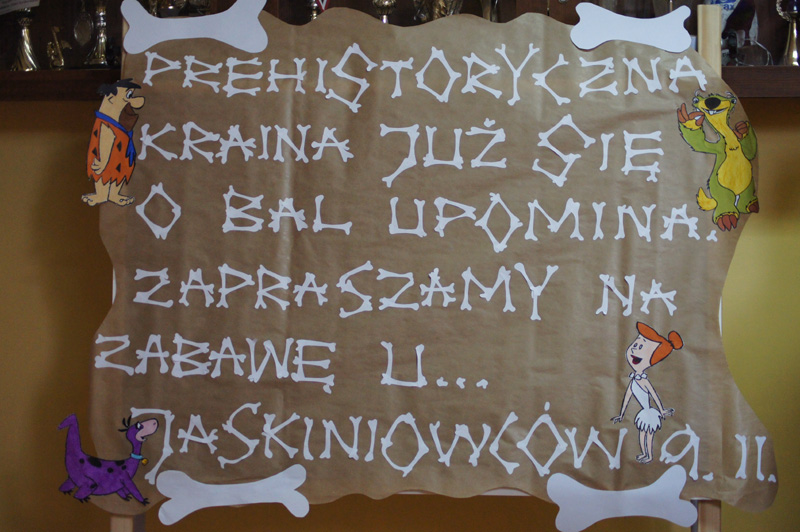 PREHISTORYCZNA
KRAINA JUŻ SIĘ
O BAL UPOMINA.
ZAPRASZAMY NA
ZABAWĘ U...
JASKINIOWCÓW 9. II.